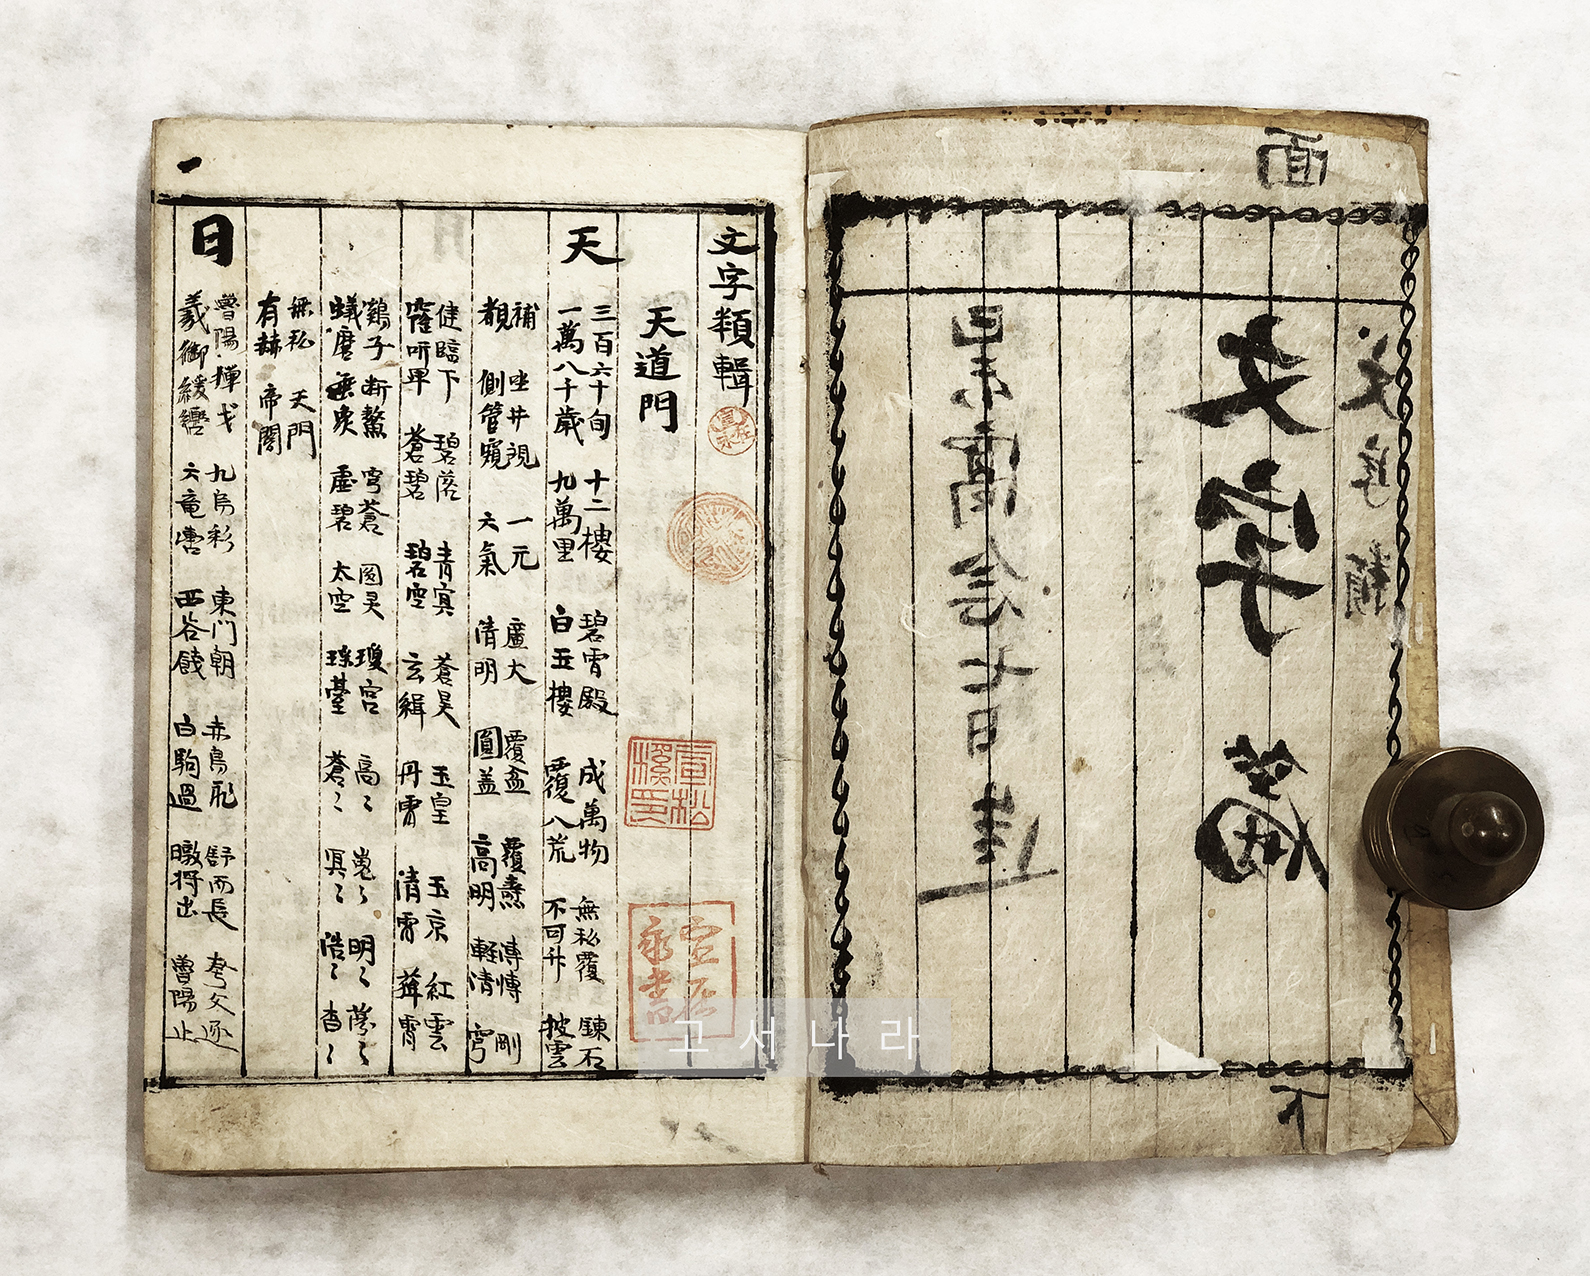 面
文字類
文字 萹
七日
下
文字類輯
天道門
天
三百六十旬 十二樓 碧霄殿 成萬物 無私覆 鍊石
一萬八千歲 九萬里 白玉樓 覆八荒 不可升 披雲
補 坐井視 一元 廬大 覆盆 覆燾 慱慱 剛
覩 側管窺 大氣 清明 圓盖 高明 軽清 穹
健 臨下 碧落 青冥 蒼昊 玉皇 玉京 紅雲
窿 听卑 蒼碧 碧空 玄緝 丹霄 清霄 霄
鷄子 断鰲 穹蒼 圎灵 瓊宮 高〻 嵬〻 明〻 蕩〻
蟻磨 無臭 虛碧 太空 瑤臺 蒼〻 冥〻 浩〻 杳〻
無私 天門
有赫 帝閽
日
魯陽揮戈 九烏彩 東门朝 赤烏飛 舒而長 夸父逐
羲御緩轡 六竜 西谷餞 白駒過 暾将出 魯陽止
고서나라